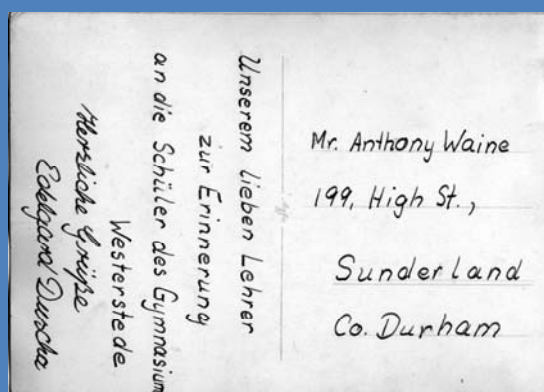 Unserem lieben Lehrer
zur Erinnerung
an die Schüler des Gymnasium
Westerstede.
Herzliche Grüße
Edelgard Duscha
Mr. Anthony Waine
199, High St.,
Sunderland
Co. Durham